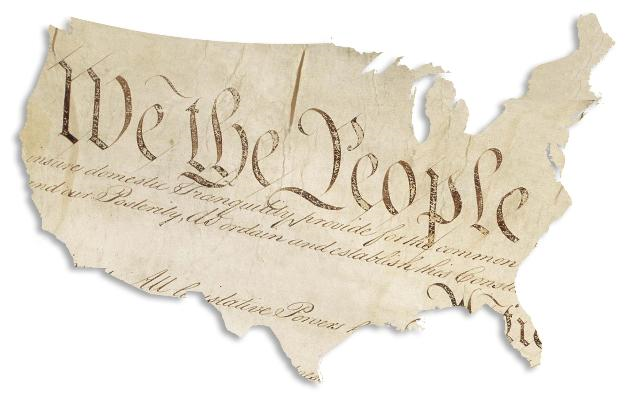 We the People
insure domestic Tranquility, provide for the common
nd our Posterity, do ordain and establish this Consti
All Powers